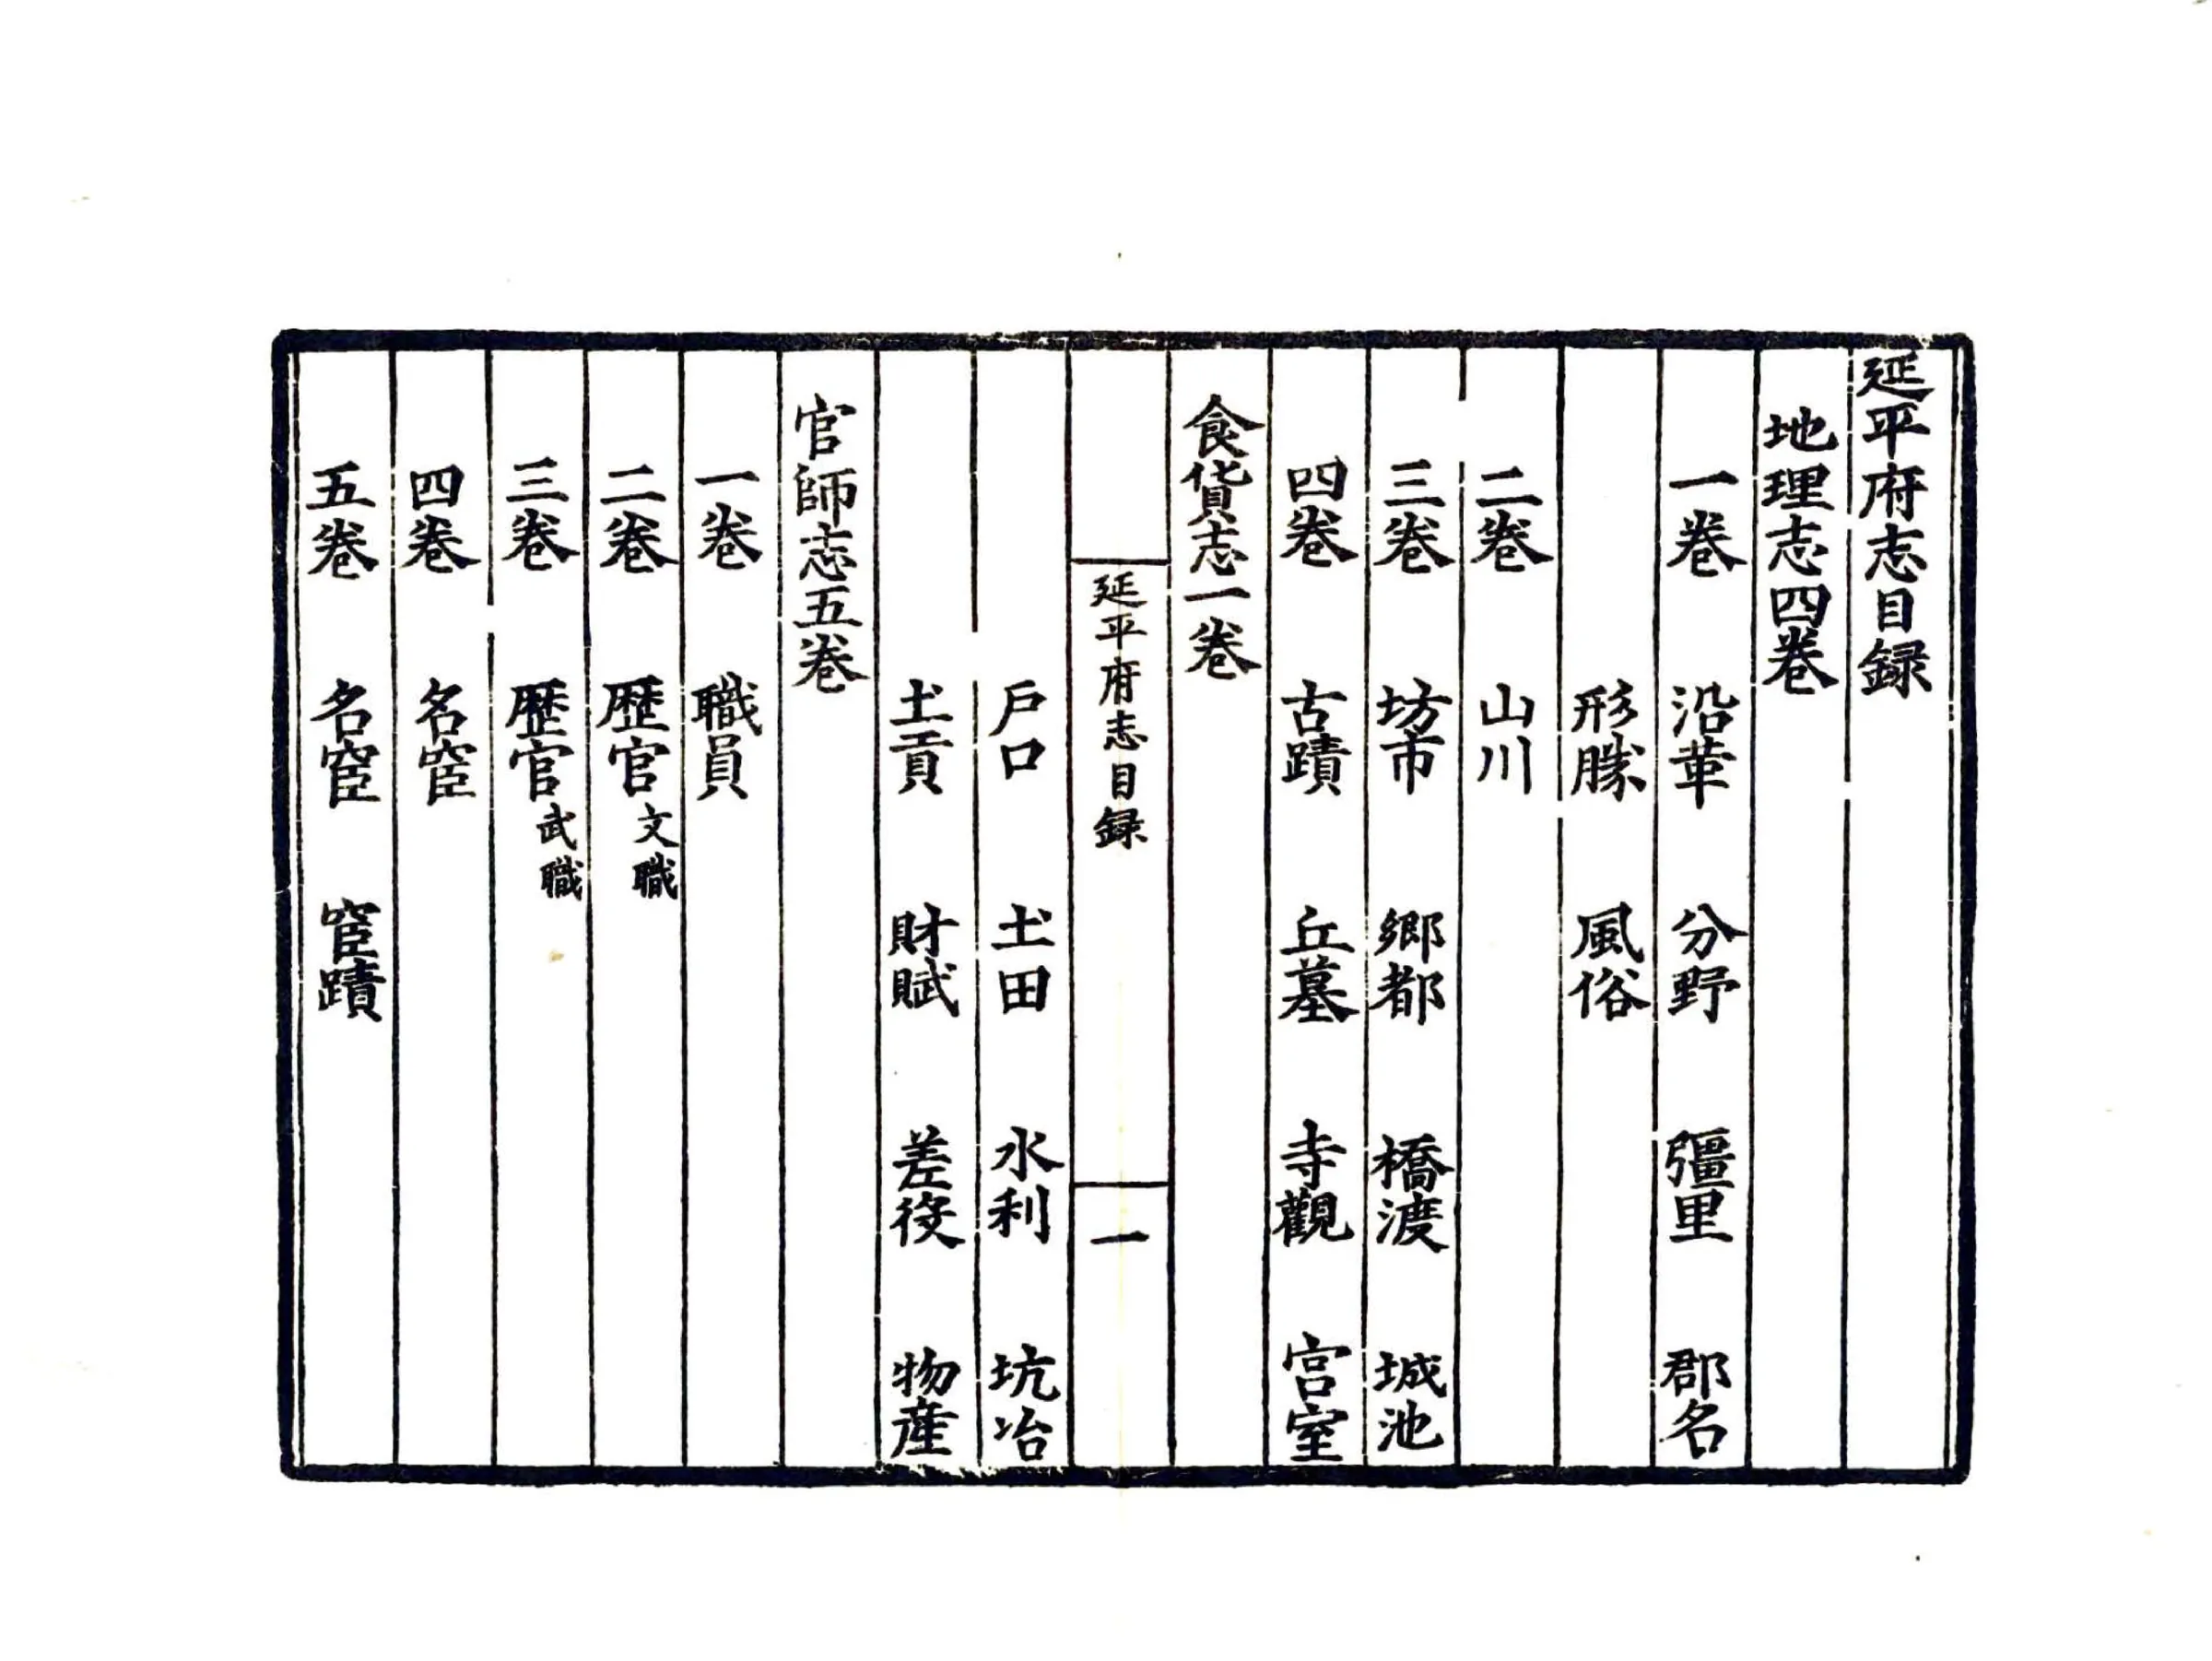 延平府志目録
地理志四卷
一卷 沿革 分野 彊里 郡名
形勝 風俗
二卷 山川
三卷 坊市 鄉都 橋渡 城池
四卷 古蹟 丘墓 寺觀 宫室
食貨志一卷
延平府志目録 一
戶口 土田 水利 坑冶
土貢 財賦 差役 物產
官師志五卷
一卷 職員
二卷 歷官文職
三卷 歷官武職
四卷 名宦
五卷 名宦 宦蹟